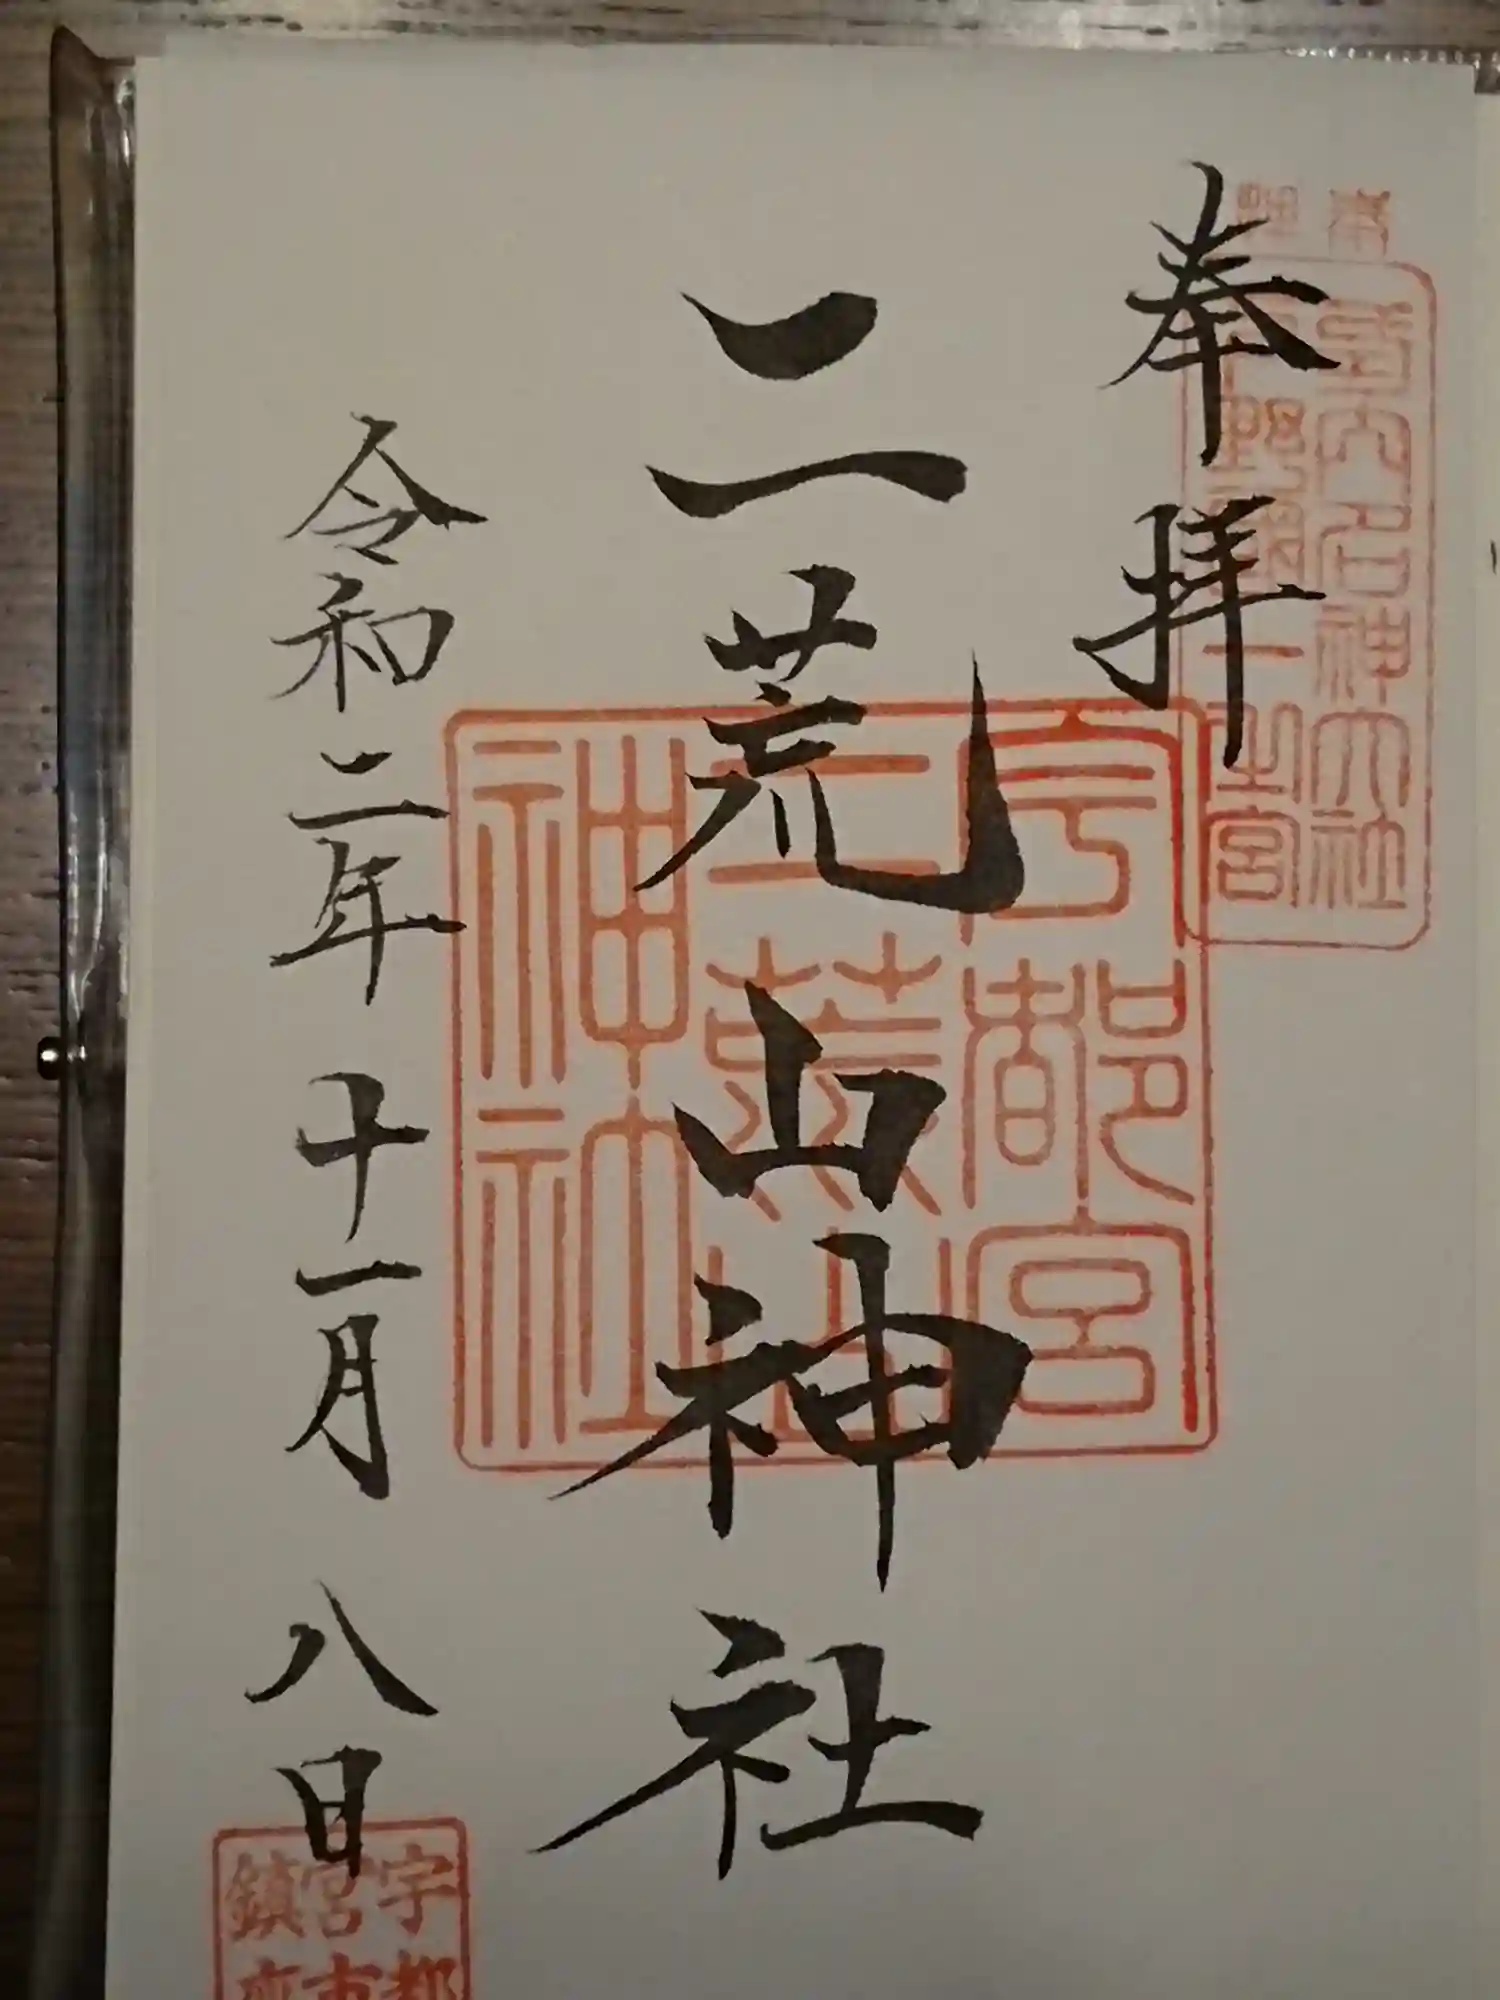 奉拝
延喜式内名神大社
下野國一之宮
二荒山神社
宇都宮
二荒山
神社
令和二年十一月八日
宇都
宮市
鎮